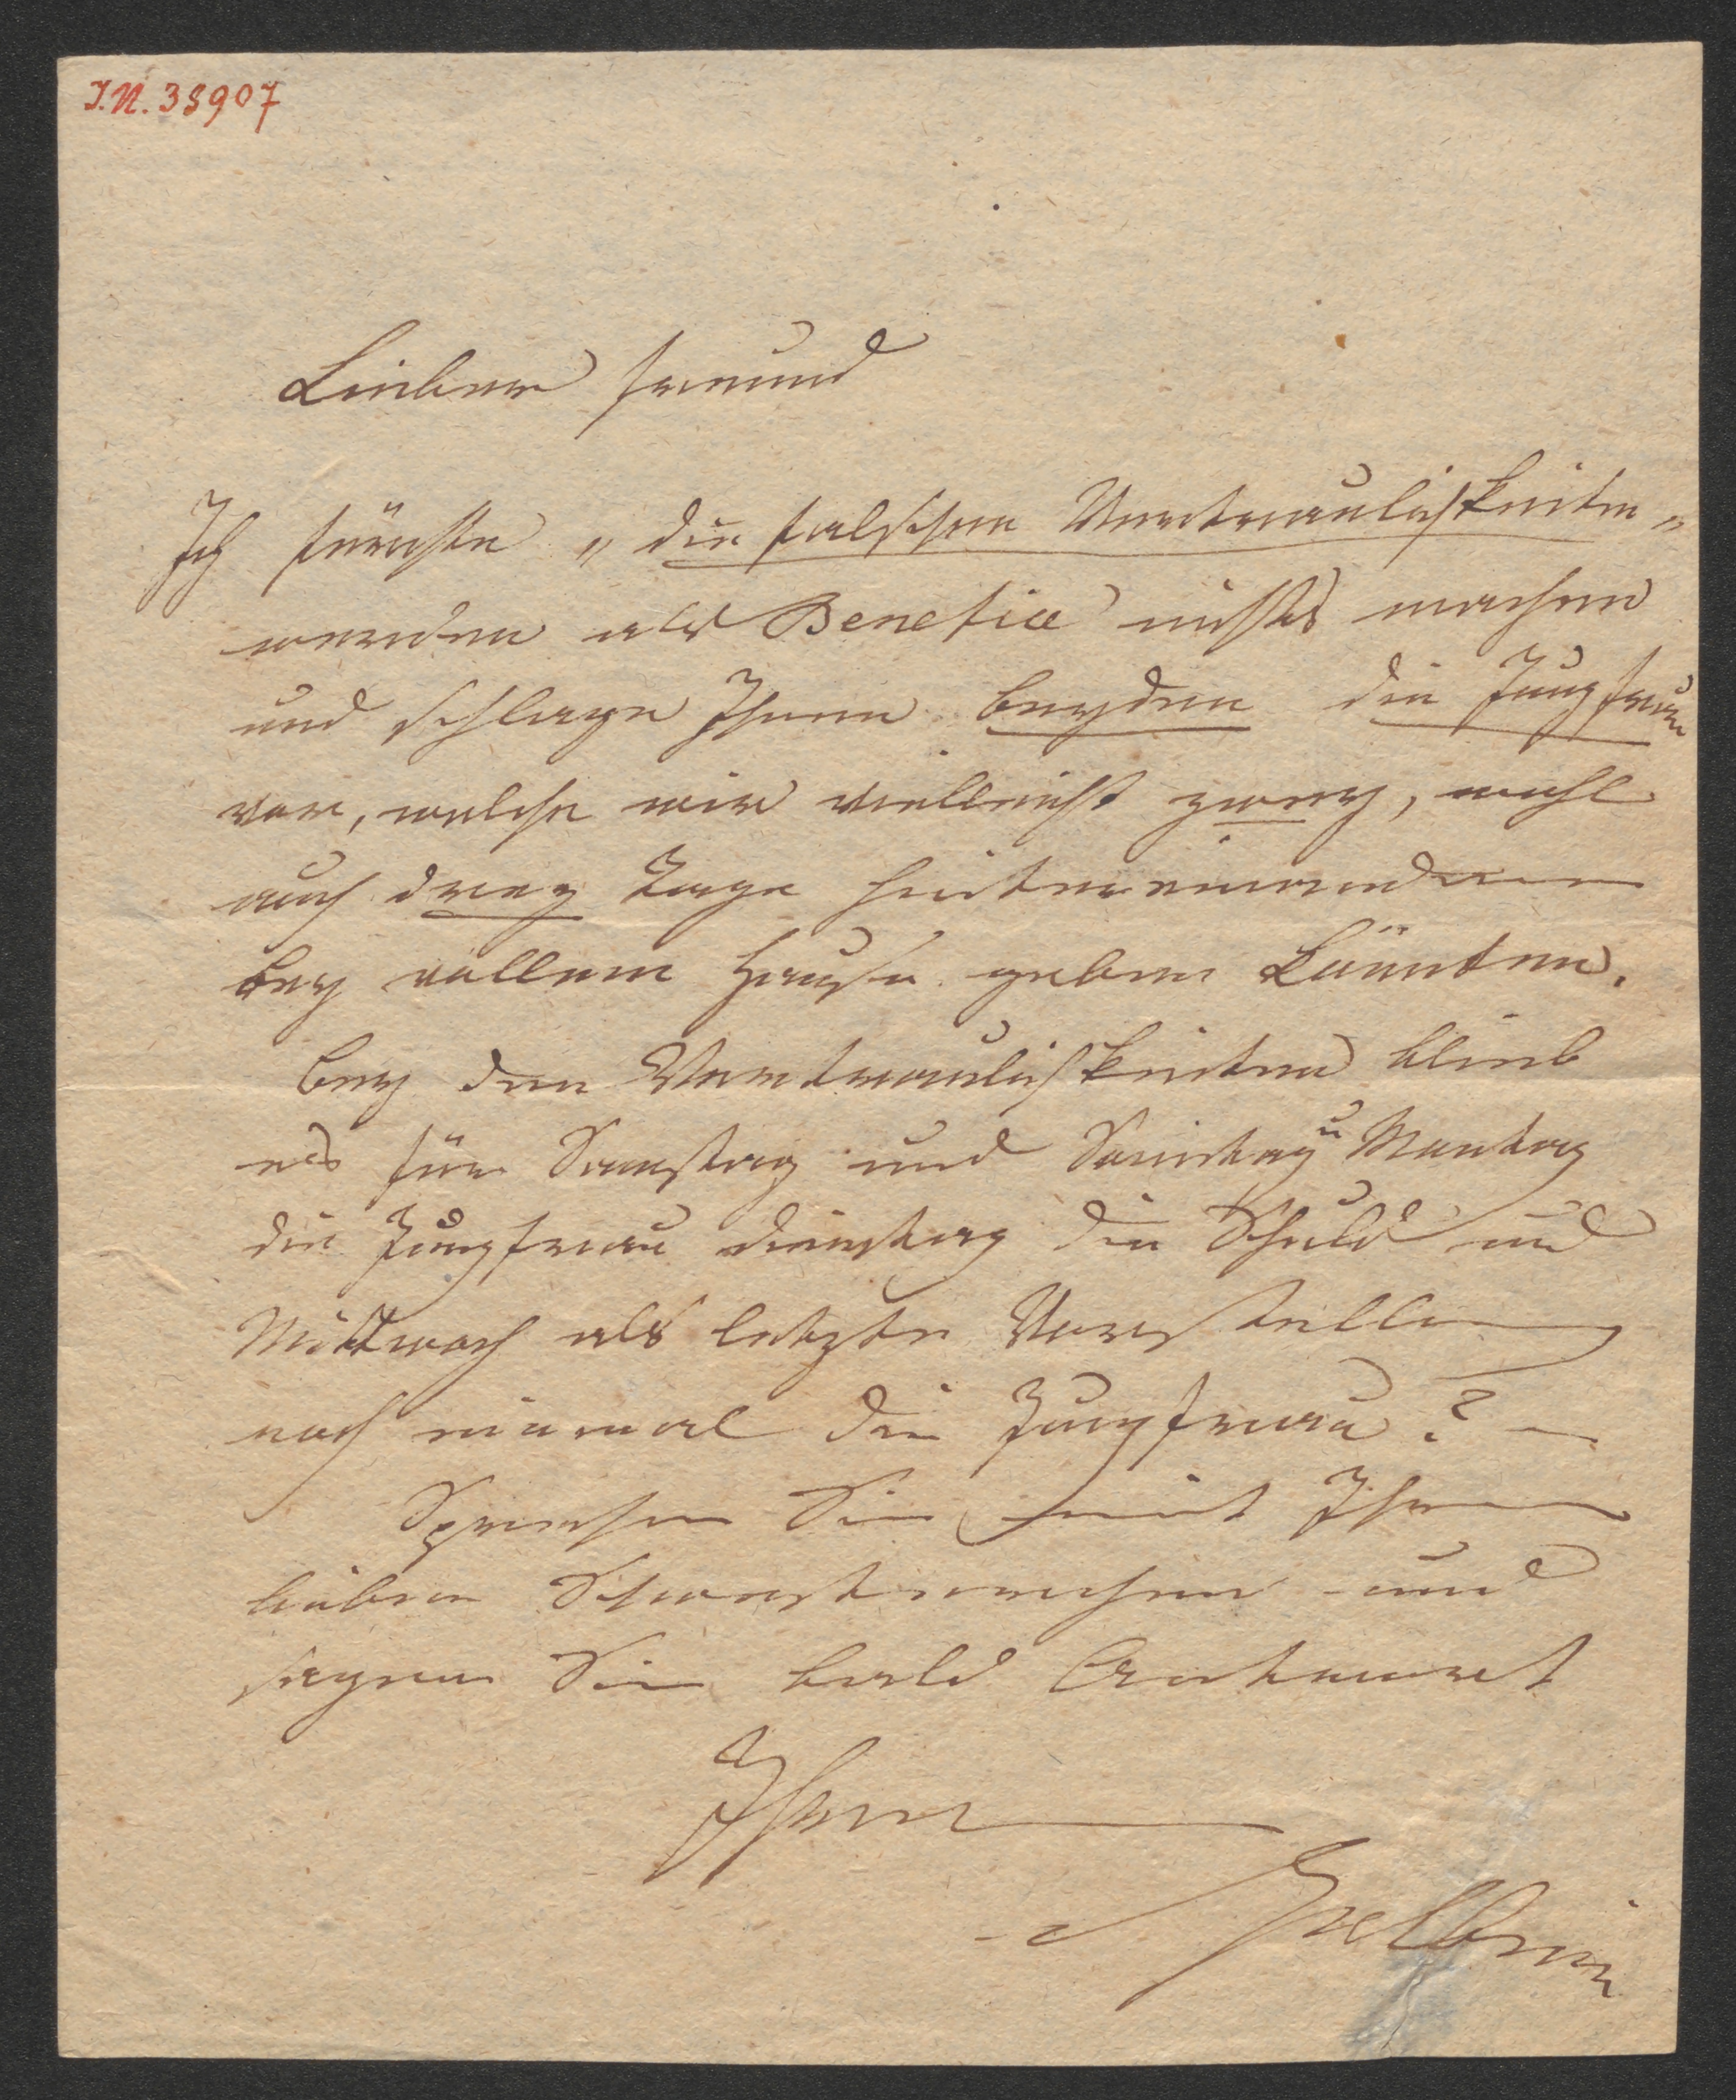 I.N. 38907
Lieber Freund
Ich fürchte „die falschen Vertraulichkeiten„
werden als Benefice nichts machen
und schlage Ihnen beyden die Jungfrau
vor, welche wir vielleicht zwey, wohl
auch drey Tage hintereinander
bey vollem Hause geben könnten.
bey den Vertraulichkeiten blieb
es für Samstag und Sonntag u Montag
die Jungfrau dienstag die Schuld und
Mittwoch als letzte Vorstellung
noch einmal die Jungfrau? —
Sprechen Sie mit Ihrem
lieben Schwesterchen und
sagen Sie bald Antwort
Ihrem
Holbein